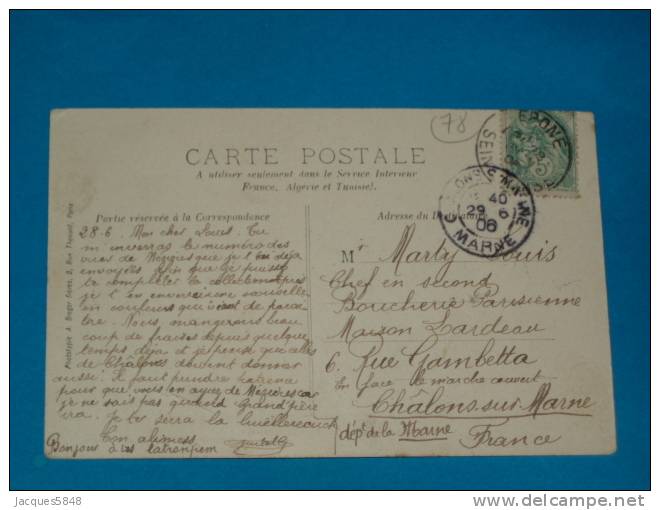 78
CARTE POSTALE
A utiliser seulement dans le Service Intérieur
France, Algérie et Tunisie).
Partie réservée à la Correspondance
Adresse du
EPONE
SEINE
40
29 6
06
MARNE
Phototypie A. Breger Frères, 9, Rue Thénard, Paris
28-6. Mon cher Louis. Tu
m'inverras le numéro des
vues de Mézières que je t'ai déjà
envoyées afin que je puisse
te compléter la
je t'en
en couleurs qui vient de paraî
tre. Nous mangeons beau
coup de fraises depuis quelque
temps déja et je pense que celles
de Châlons doivent donner
aussi. Il faut
pour que vous en ayez de Mézières car
je ne sais pas quand Grand'père
ira. Je te serre la
Ton
Bonjour à
Mr Marty Louis
Chef en second
Boucherie Parisienne
Maison Lardeau
6. Rue Gambetta
En face le marché couvert
Châlons-sur-Marne
dépt de la Marne
France
Jacques5848
www.delcampe.net